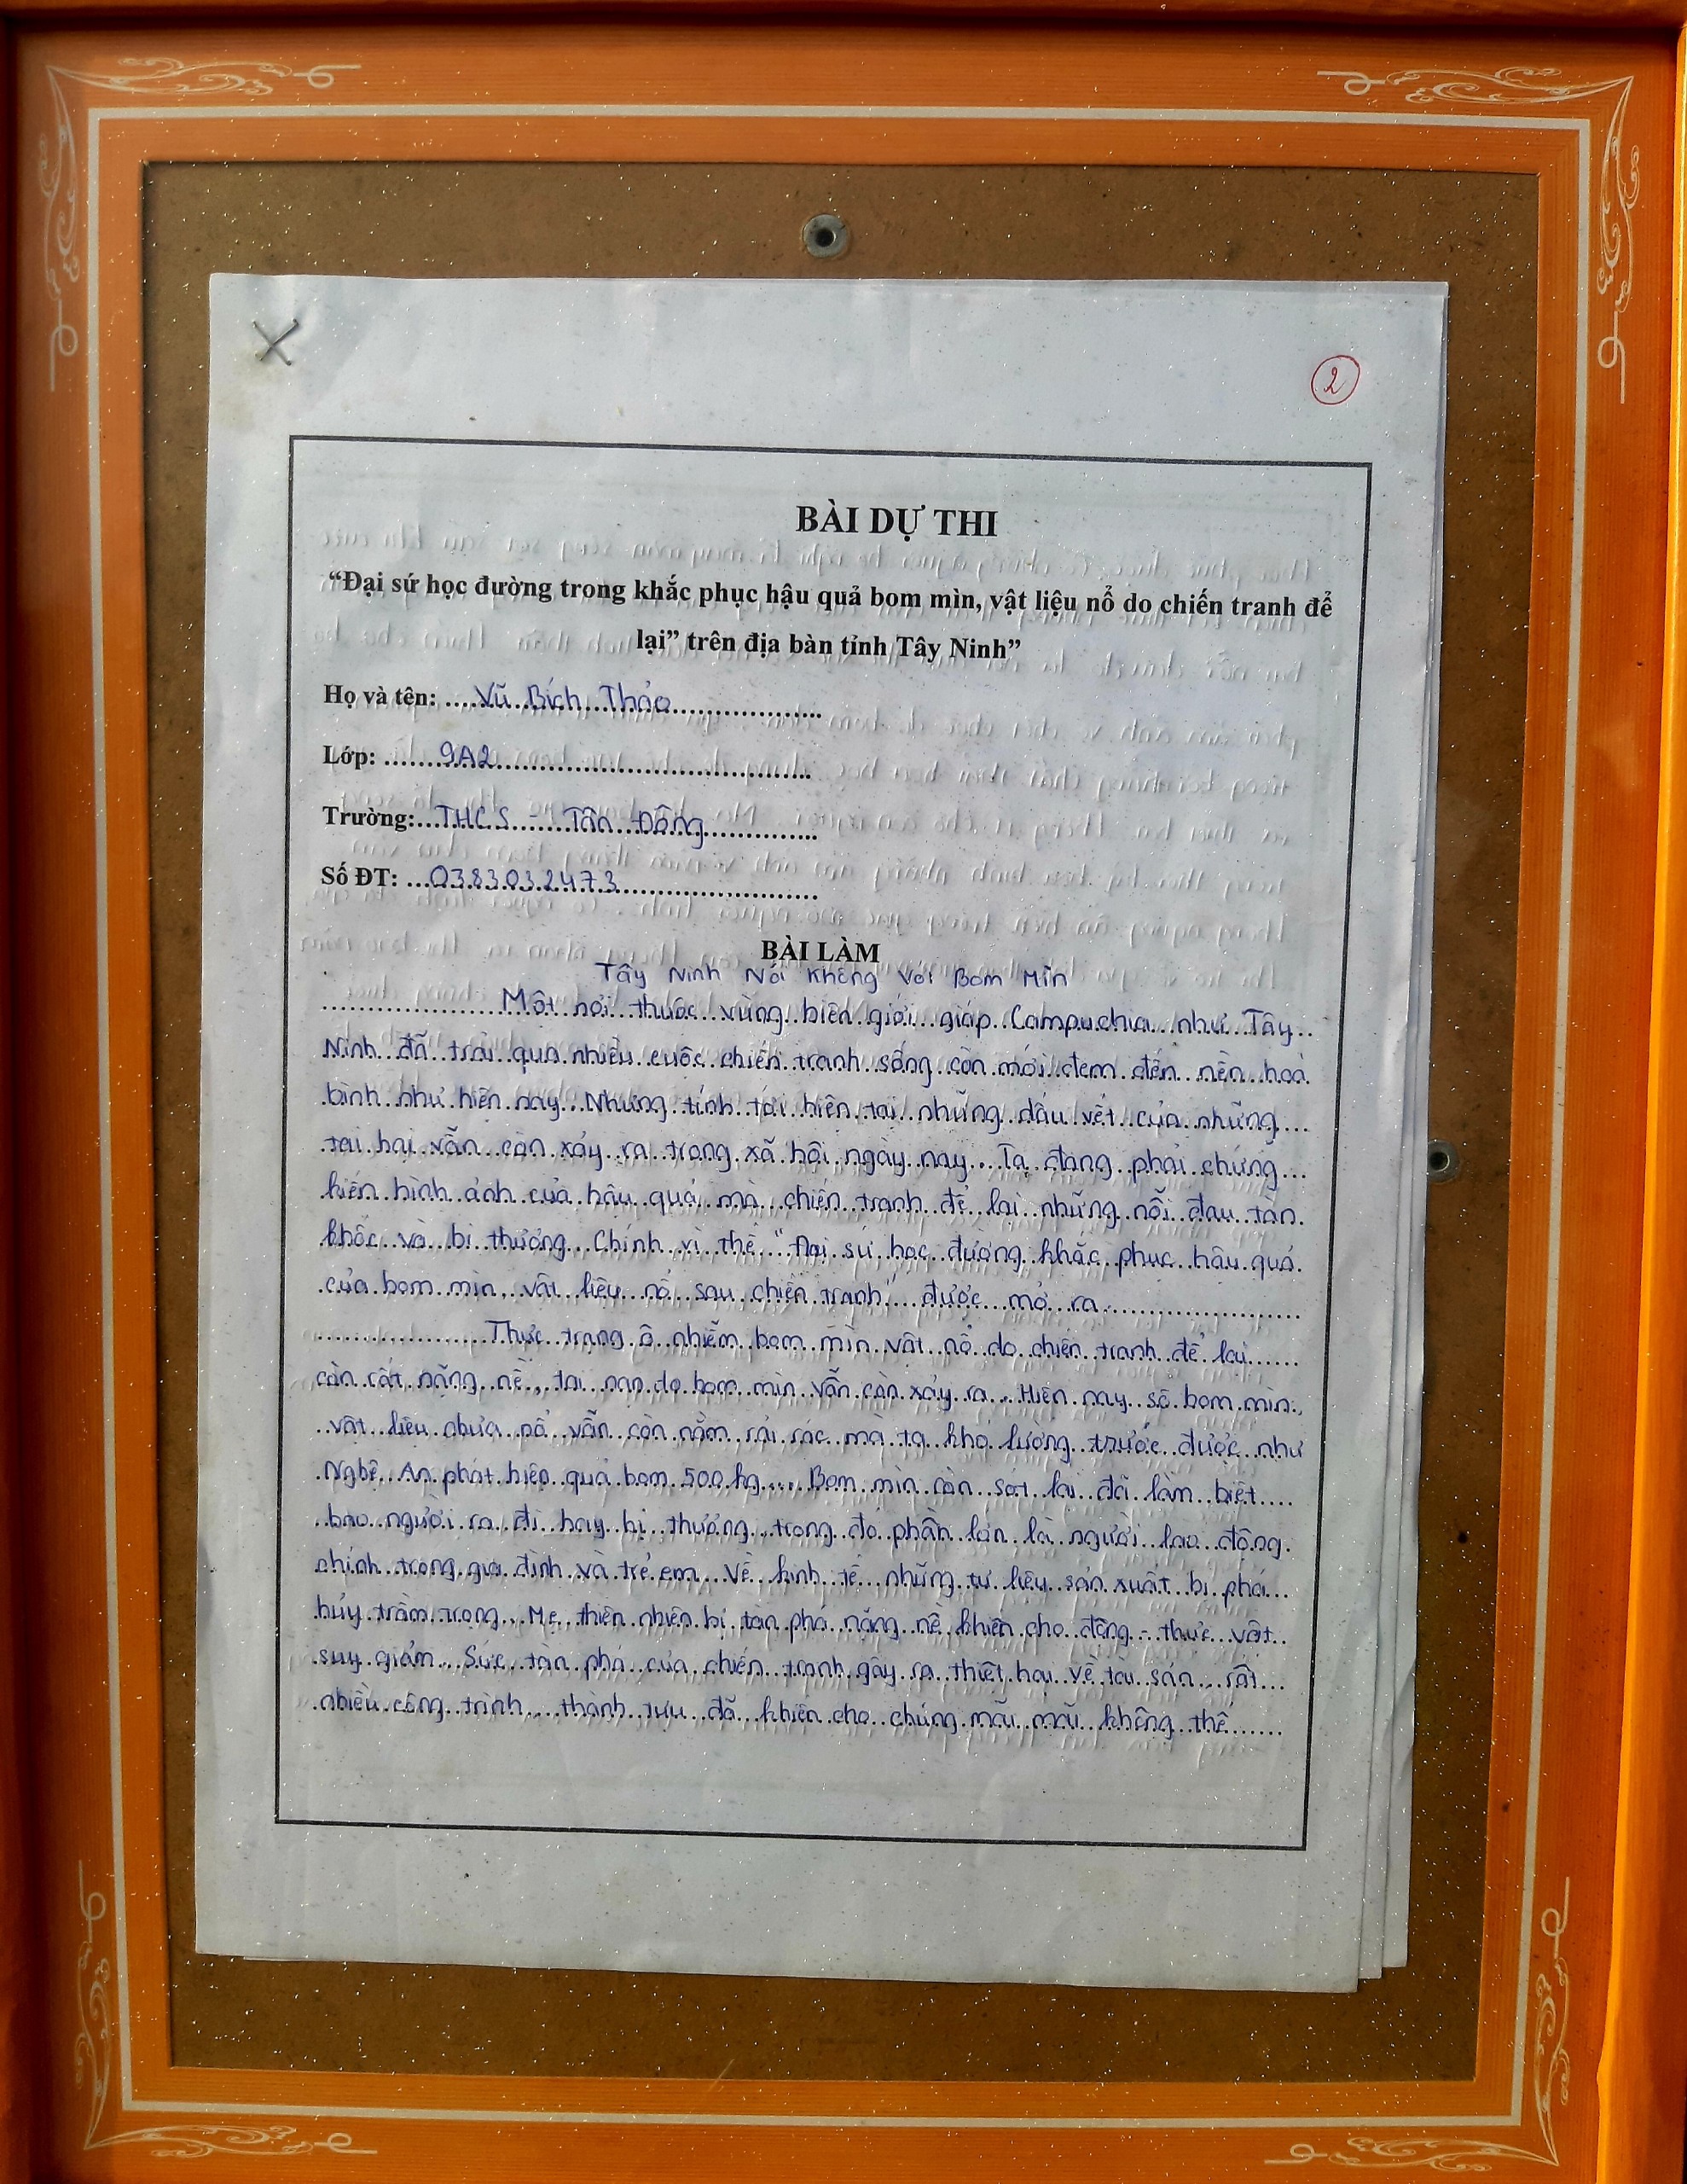 2
BÀI DỰ THI
“Đại sứ học đường trong khắc phục hậu quả bom mìn, vật liệu nổ do chiến tranh để
lại” trên địa bàn tỉnh Tây Ninh”
Họ và tên: Vũ Bích Thảo
Lớp: 9A2
Trường: THCS - Tân Đông
Số ĐT: 0383032473
BÀI LÀM
Tây Ninh Nói Không Với Bom Mìn
Một nơi thuộc vùng biên giới giáp Campuchia như Tây
Ninh đã trải qua nhiều cuộc chiến tranh sống còn mới đem đến nền hoà
bình như hiện nay. Nhưng tính tới hiện tại những dấu vết của những
tai hại vẫn còn xảy ra trong xã hội ngày nay. Ta đang phải chứng
kiến hình ảnh của hậu quả mà chiến tranh để lại những nỗi đau tàn
khốc và bi thương. Chính vì thế "Đại sứ học đường khắc phục hậu quả
của bom mìn, vật liệu nổ sau chiến tranh" được mở ra
Thực trạng ô nhiễm bom mìn vật nổ do chiến tranh để lại
còn rất nặng nề, tai nạn do bom mìn vẫn còn xảy ra. Hiện nay số bom mìn,
vật liệu chưa nổ vẫn còn nằm rải rác mà ta khó lường trước được như
Nghệ An phát hiện quả bom 500 kg... Bom mìn còn sót lại đã làm biết
bao người ra đi hay bị thương, trong đó phần lớn là người lao động
chính trong gia đình và trẻ em. Về kinh tế, những tư liệu sản xuất bị phá
hủy trầm trọng. Mẹ thiên nhiên bị tàn phá nặng nề khiến cho động - thực vật
suy giảm. Sức tàn phá của chiến tranh gây ra thiệt hại về tài sản, rất
nhiều công trình, thành tựu đã khiến cho chúng mãi mãi không thể